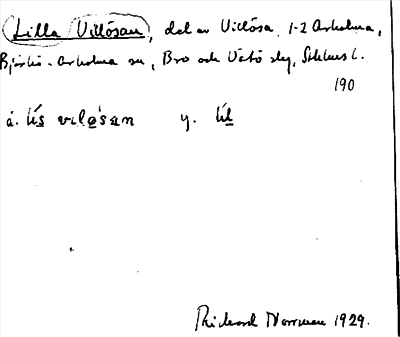 Lilla Villösan, del av Villösa, 1-2 Arholma,
Björkö-Arholma sn, Bro och Vätö slg, Sthlms l.
190
å. lís vilösan y. líl
Rickard Norrman 1929.